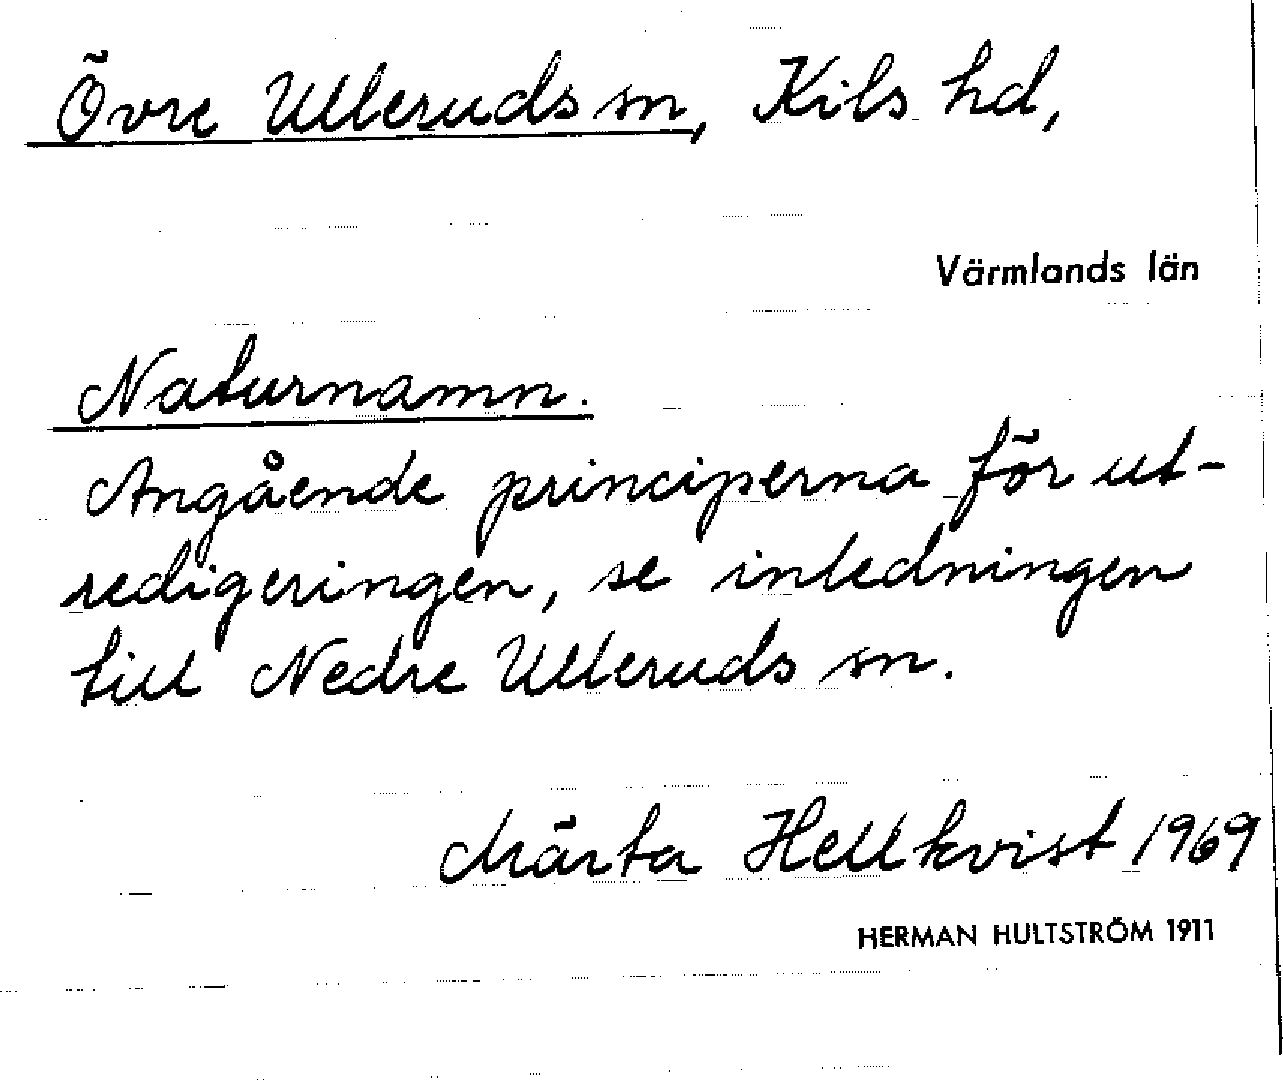 Övre Ulleruds sn, Kils hd,
Värmlands län
Naturnamn.
Angående principerna för ut-
redigeringen, se inledningen
till Nedre Ulleruds sn.
Märta Hellkvist 1969
HERMAN HULTSTRÖM 1911